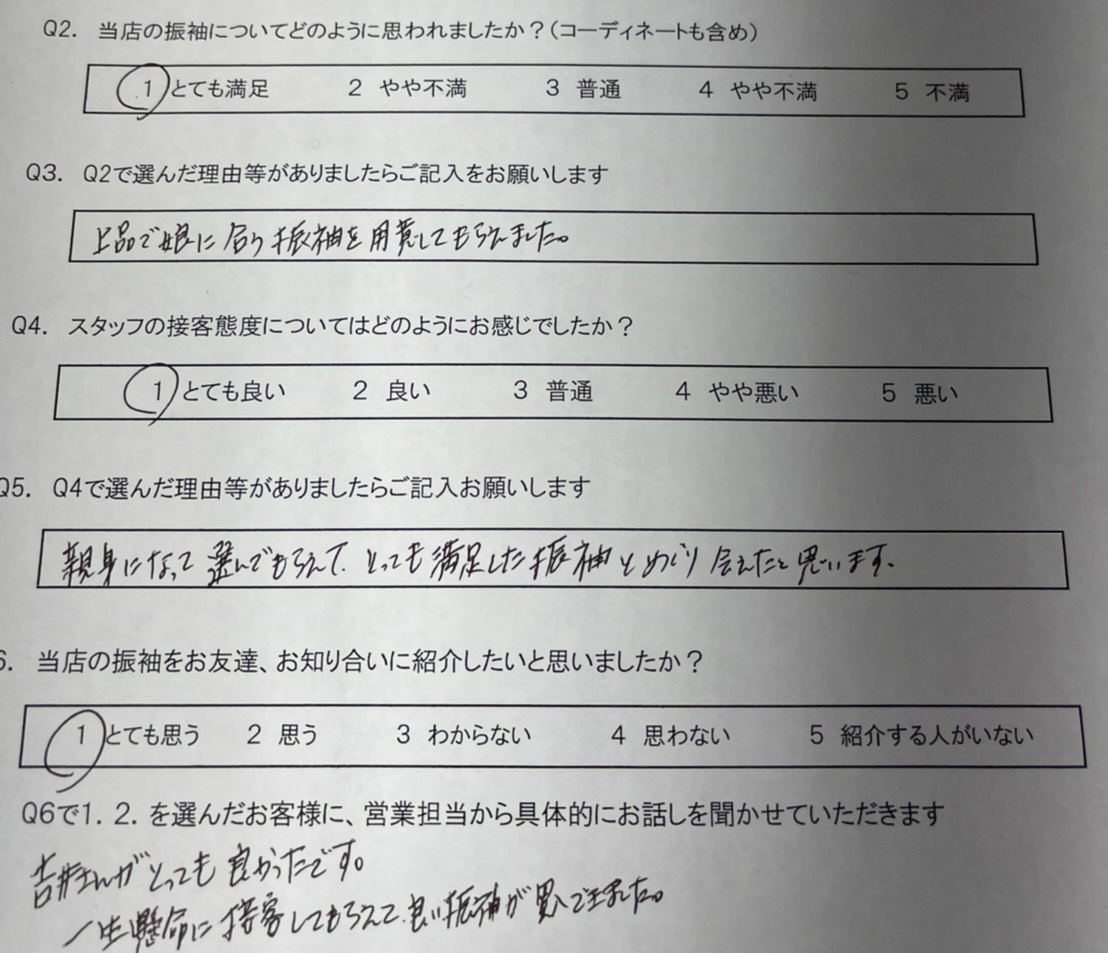 Q2. 当店の振袖についてどのように思われましたか？（コーディネートも含め）
1 とても満足 2 やや不満 3 普通 4 やや不満 5 不満
Q3. Q2で選んだ理由等がありましたらご記入をお願いします
上品で娘に合う振袖を用意してもらえました。
Q4. スタッフの接客態度についてはどのようにお感じでしたか？
1 とても良い 2 良い 3 普通 4 やや悪い 5 悪い
Q5. Q4で選んだ理由等がありましたらご記入お願いします
親身になって選んでもらえて、とっても満足した振袖とめぐり会えたと思います。
6. 当店の振袖をお友達、お知り合いに紹介したいと思いましたか？
1 とても思う 2 思う 3 わからない 4 思わない 5 紹介する人がいない
Q6で1. 2. を選んだお客様に、営業担当から具体的にお話しを聞かせていただきます
吉井さんがとっても良かったです。
一生懸命に接客してもらえて、良い振袖が買えました。